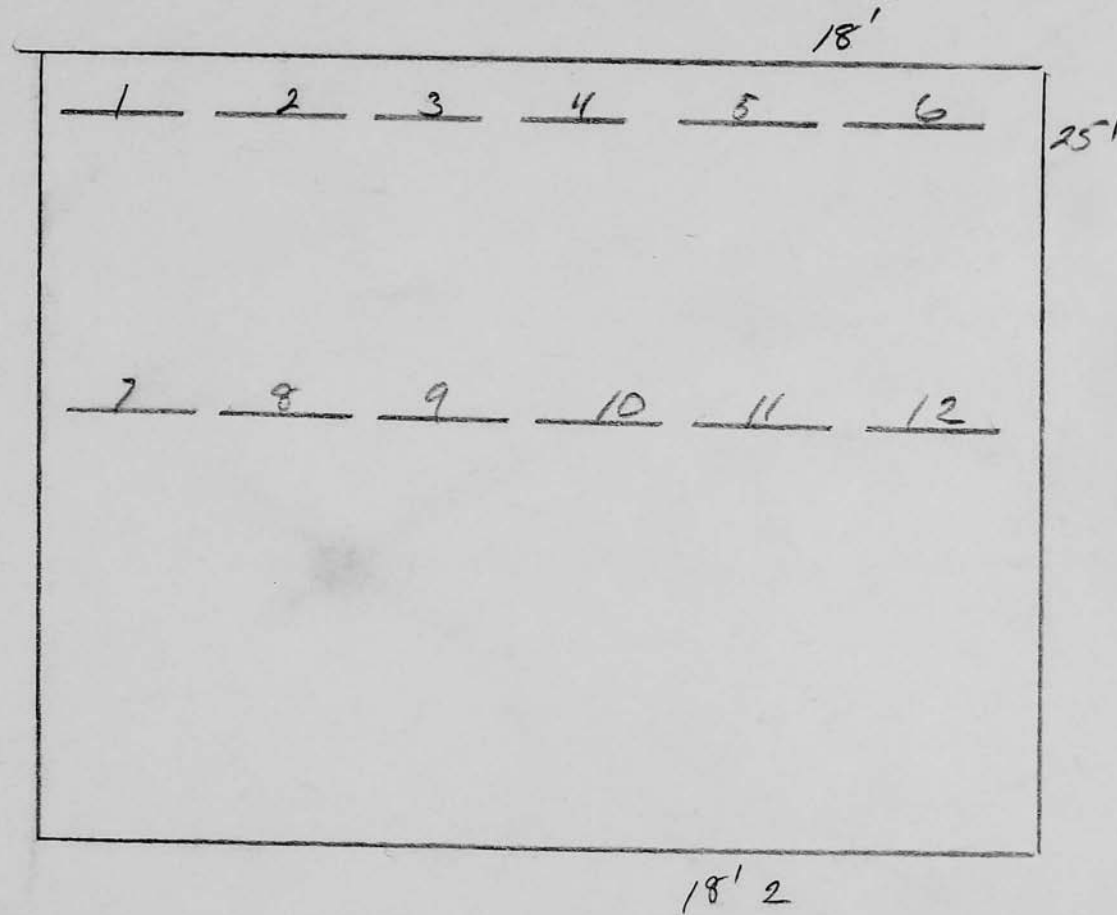 18'
1 2 3 4 5 6
25'
7 8 9 10 11 12
18' 2